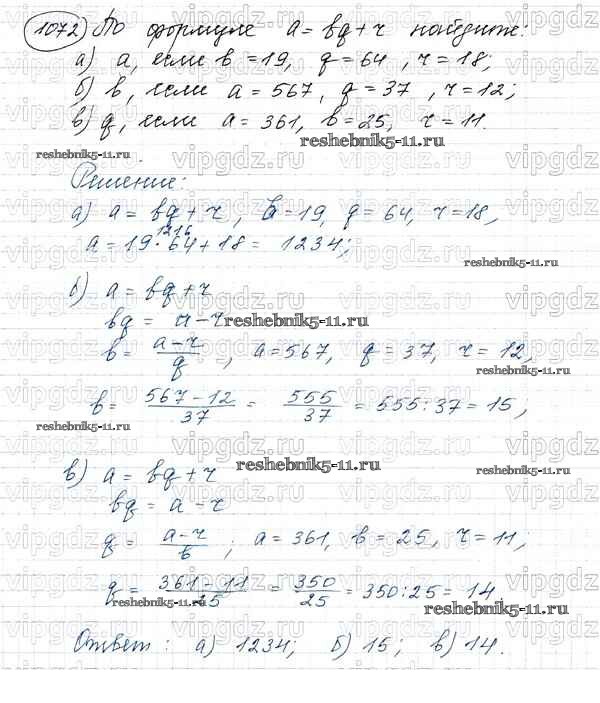 1072) По формуле a = bq + r найдите:
а) a, если b = 19, q = 64, r = 18;
б) b, если a = 567, q = 37, r = 12;
в) q, если a = 361, b = 25, r = 11.
reshebnik5-11.ru
Решение:
а) a = bq + r, b = 19, q = 64, r = 18,
1216
a = 19 · 64 + 18 = 1234;
reshebnik5-11.ru
б) a = bq + r
bq = a - r
reshebnik5-11.ru
b = (a - r)/q, a = 567, q = 37, r = 12,
reshebnik5-11.ru
b = (567 - 12)/37 = 555/37 = 555 : 37 = 15,
в) a = bq + r
reshebnik5-11.ru
bq = a - r
q = (a - r)/b; a = 361, b = 25, r = 11;
q = (361 - 11)/25 = 350/25 = 350 : 25 = 14.
reshebnik5-11.ru
Ответ: а) 1234; б) 15; в) 14.
vipgdz.ru